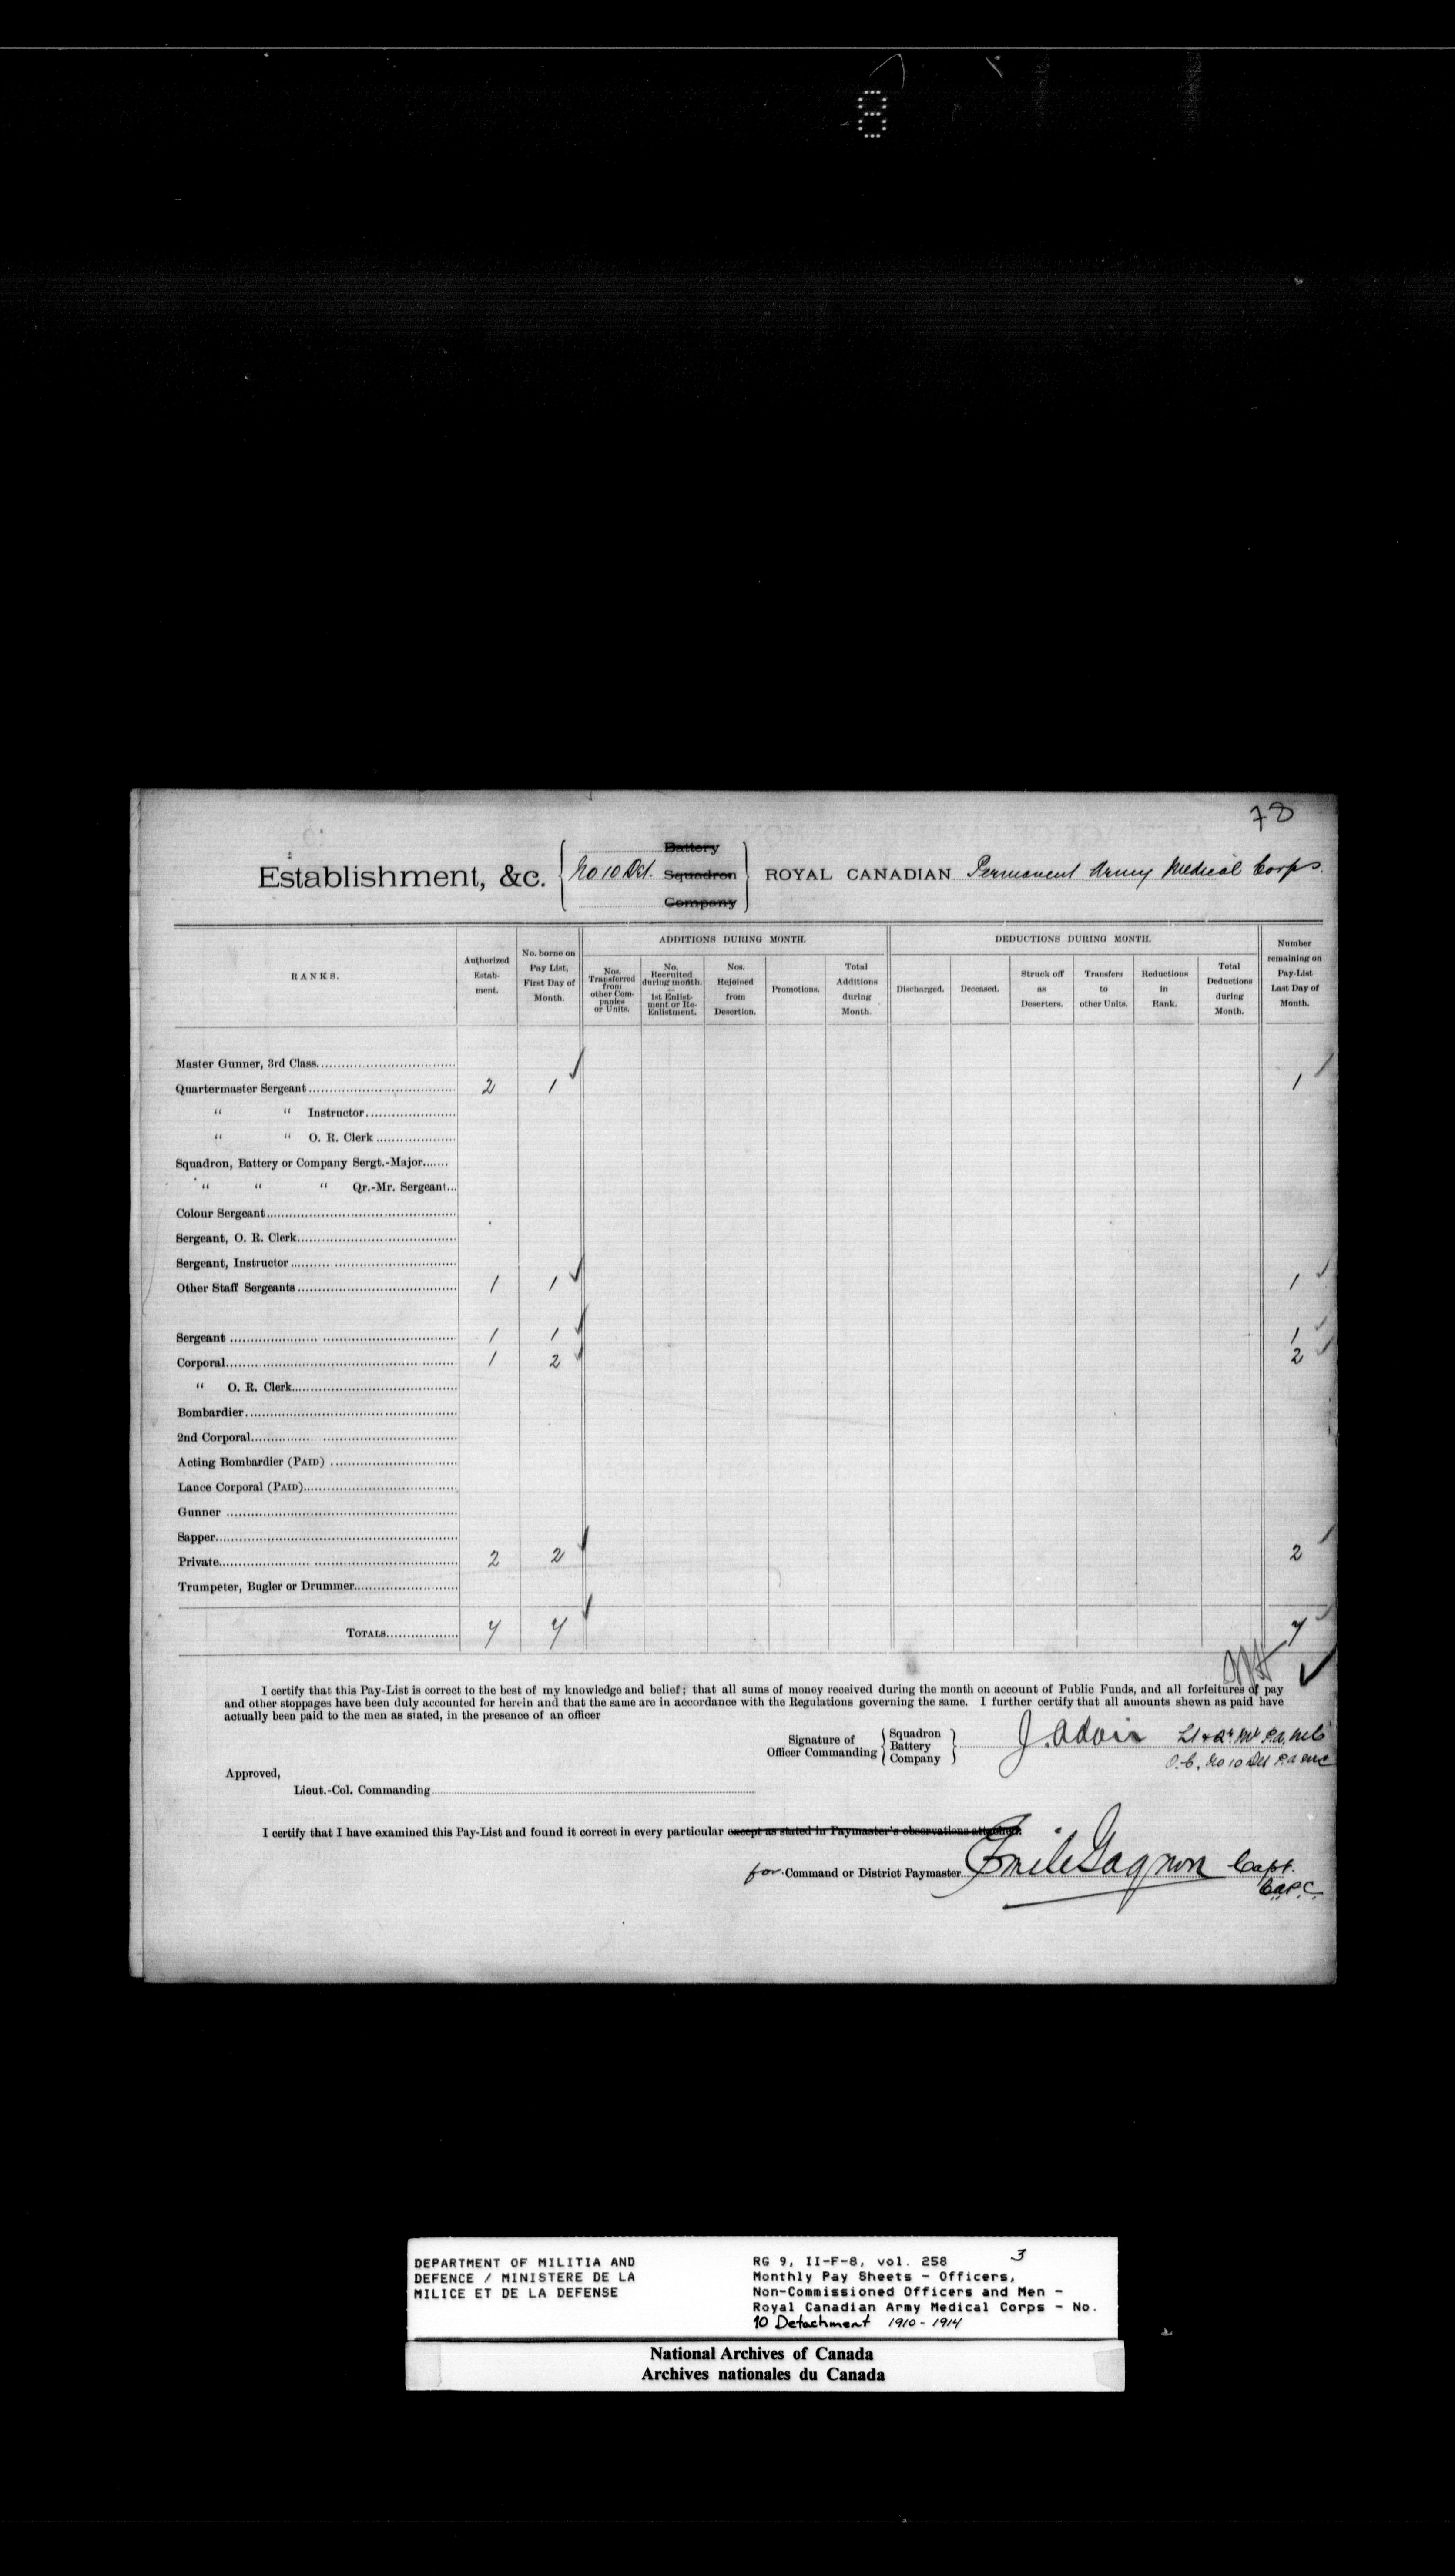 8
78
Establishment, &c. { No 10 Det. Battery Squadron Company } ROYAL CANADIAN Permanent Army Medical Corps.
RANKS. Authorized Establishment. No. borne on Pay List, First Day of Month. ADDITIONS DURING MONTH. DEDUCTIONS DURING MONTH. Number remaining on Pay-List Last Day of Month.
Nos. Transferred from other Companies or Units. No. Recruited during month. — 1st Enlistment or Re-Enlistment. Nos. Rejoined from Desertion. Promotions. Total Additions during Month. Discharged. Deceased. Struck off as Deserters. Transfers to other Units. Reductions in Rank. Total Deductions during Month.
Master Gunner, 3rd Class
Quartermaster Sergeant 2 1 ✓ 1 ✓
" " Instructor
" " O. R. Clerk
Squadron, Battery or Company Sergt.-Major
" " " Qr.-Mr. Sergeant
Colour Sergeant
Sergeant, O. R. Clerk
Sergeant, Instructor
Other Staff Sergeants 1 1 ✓ 1 ✓
Sergeant 1 1 ✓ 1 ✓
Corporal 1 2 ✓ 2 ✓
" O. R. Clerk
Bombardier
2nd Corporal
Acting Bombardier (PAID)
Lance Corporal (PAID)
Gunner
Sapper
Private 2 2 ✓ 2 ✓
Trumpeter, Bugler or Drummer
TOTALS 7 7 ✓ 7 ✓
I certify that this Pay-List is correct to the best of my knowledge and belief; that all sums of money received during the month on account of Public Funds, and all forfeitures of pay
and other stoppages have been duly accounted for herein and that the same are in accordance with the Regulations governing the same. I further certify that all amounts shewn as paid have
actually been paid to the men as stated, in the presence of an officer
Signature of Officer Commanding { Squadron Battery Company } J. Adair Lt & Qr Mr P.A.M.C
O.C. No 10 Det P.A.M.C
Approved,
Lieut.-Col. Commanding
I certify that I have examined this Pay-List and found it correct in every particular except as stated in Paymaster's observations attached.
for Command or District Paymaster Emile Gagnon Capt.
C.A.P.C.
DEPARTMENT OF MILITIA AND
DEFENCE / MINISTERE DE LA
MILICE ET DE LA DEFENSE
RG 9, II-F-8, vol. 258 3
Monthly Pay Sheets - Officers,
Non-Commissioned Officers and Men -
Royal Canadian Army Medical Corps - No.
10 Detachment 1910 - 1914
National Archives of Canada
Archives nationales du Canada